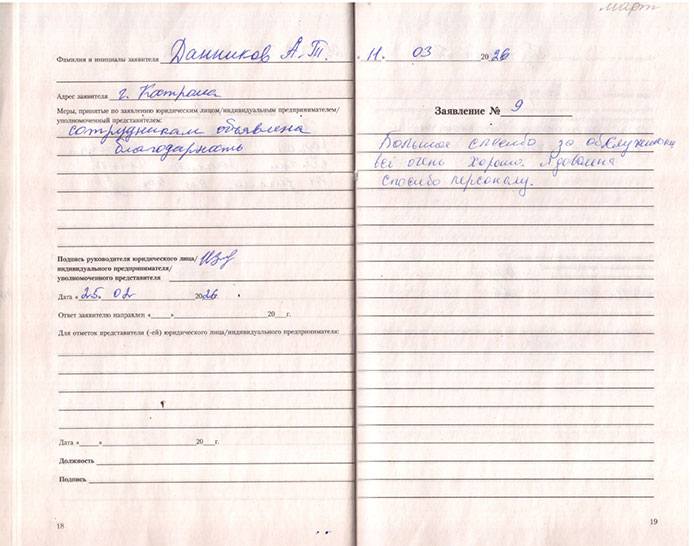 Фамилия и инициалы заявителя Данников А.Т.
Адрес заявителя г. Кострома
Меры, принятые по заявлению юридическим лицом/индивидуальным предпринимателем/
уполномоченным представителем:
сотрудникам объявлена
благодарность
Подпись руководителя юридического лица/
индивидуального предпринимателя/
уполномоченного представителя
Дата «25. 02 2026
Ответ заявителю направлен «____»____________20___г.
Для отметок представителя (-ей) юридического лица/индивидуального предпринимателя:
Дата «____»____________20___г.
Должность
Подпись
18
март
11. 03 2026
Заявление № 9
Большое спасибо за обслуживан
всё очень хорошо. Я довольна
спасибо персоналу.
19